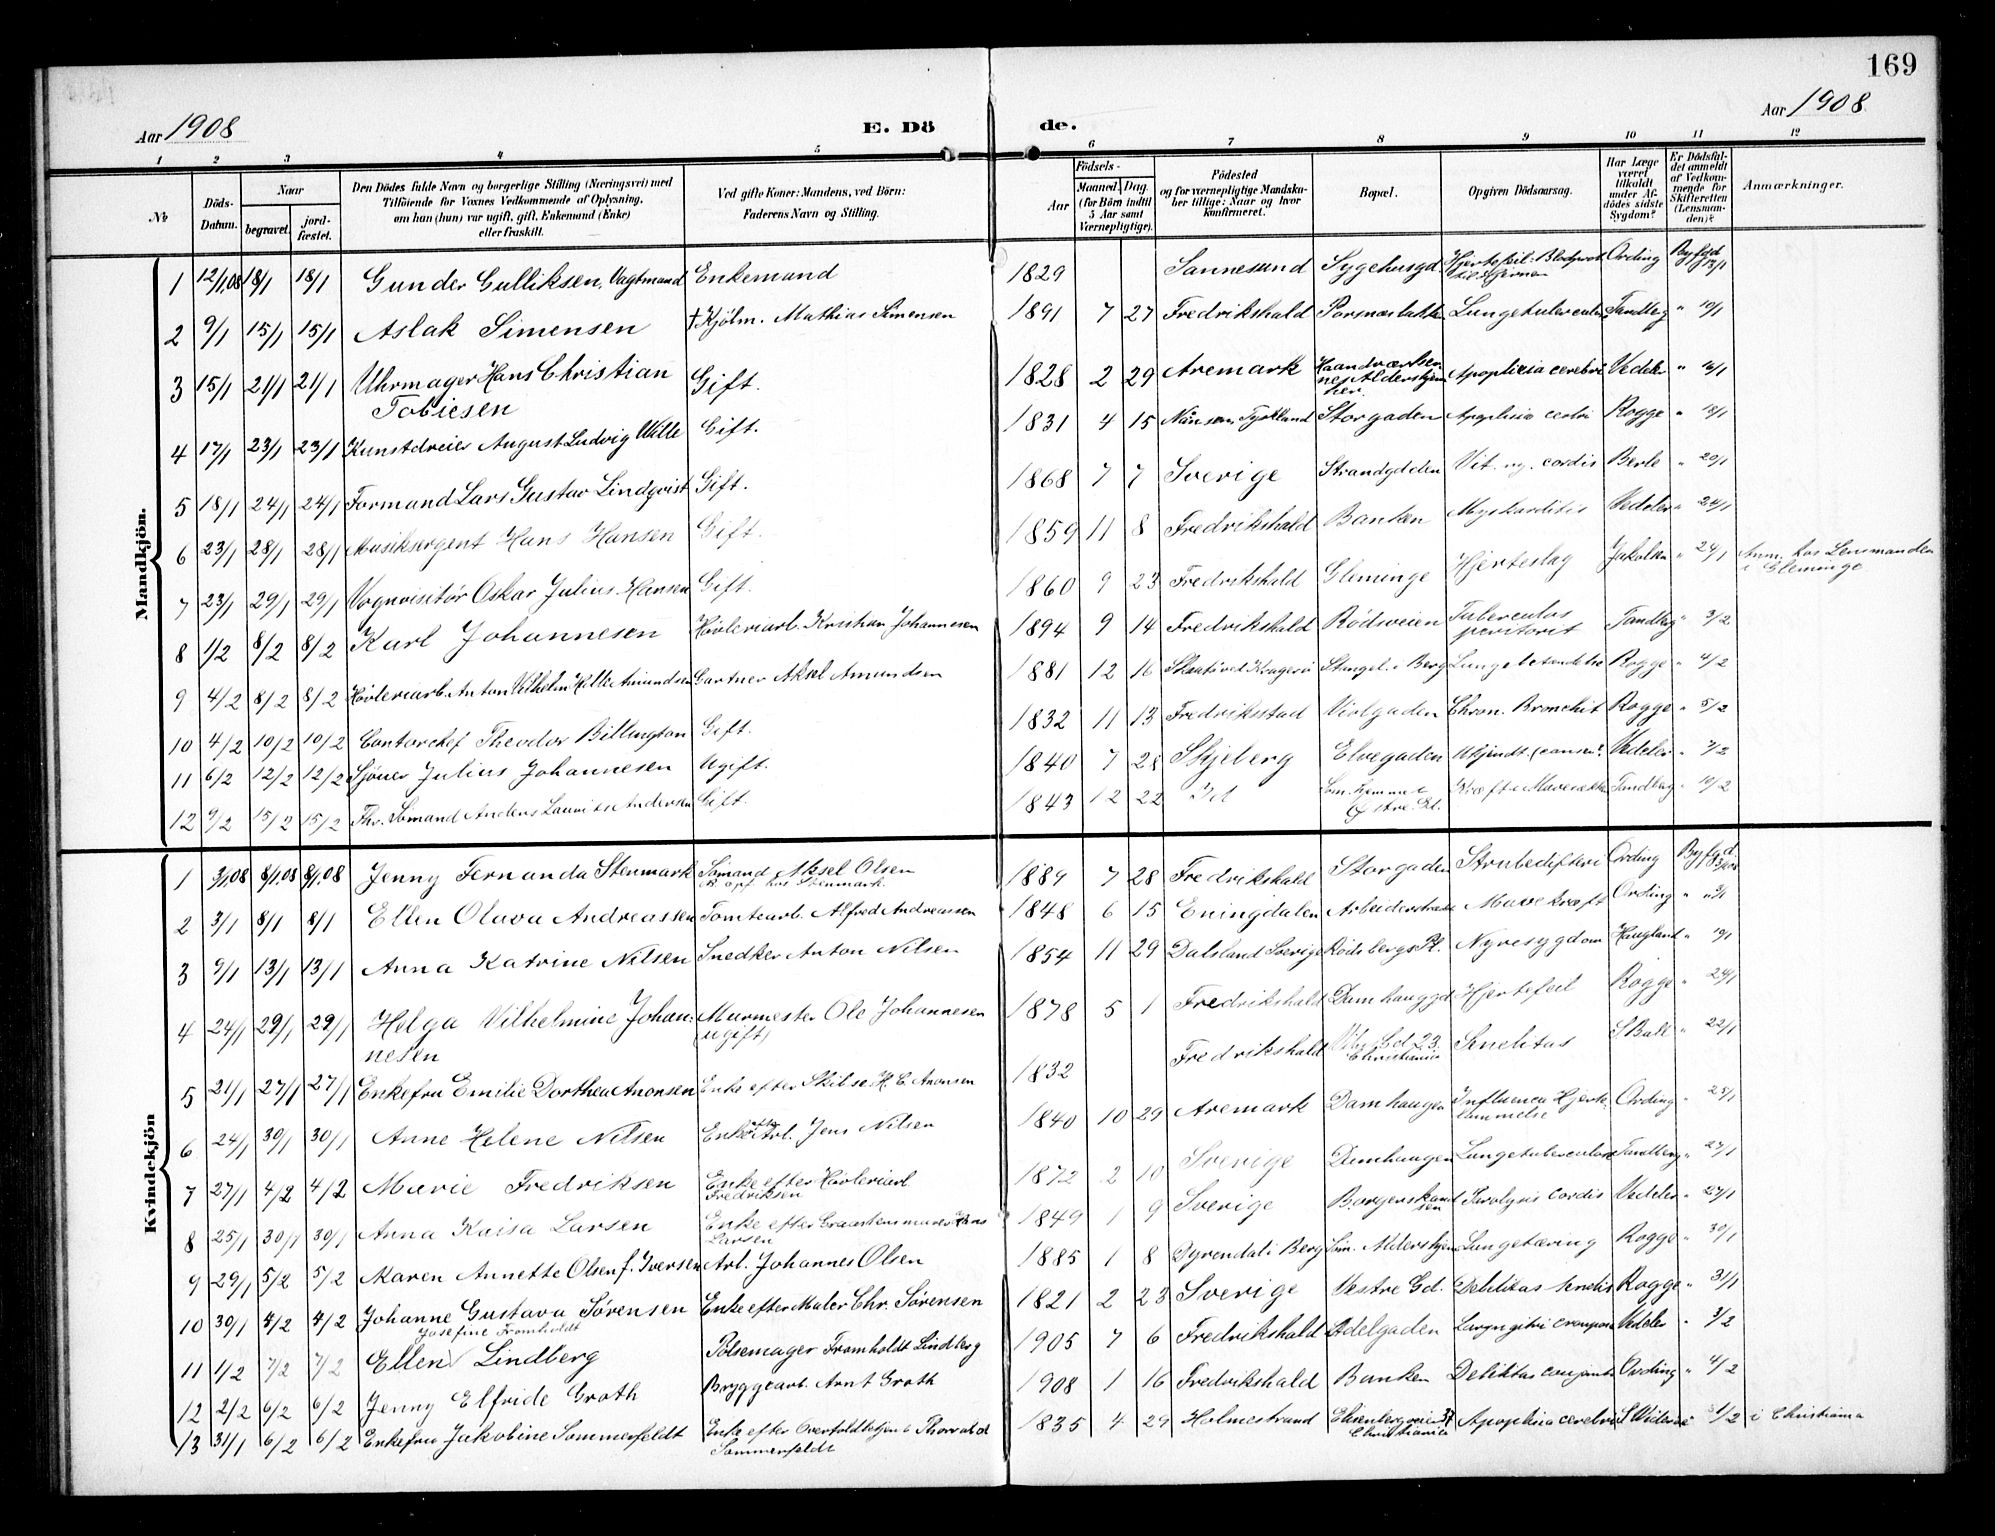 169
Aar 1908
E. Dö de.
Aar 1908
1 2 3 4 5 6 7 8 9 10 11 12
№
Döds-Datum.
Naar
begravet.
jord-fæstet.
Den Dödes fulde Navn og borgerlige Stilling (Næringsvei) med
Tilföiende for Voxnes Vedkommende af Oplysning,
om han (hun) var ugift, gift, Enkemand (Enke)
eller fraskilt.
Ved gifte Koner: Mandens, ved Börn:
Faderens Navn og Stilling.
Födsels-
Aar
Maaned. Dag.
(for Börn indtil
5 Aar samt
Værnepligtige).
Födested
og for værnepligtige Mandska-
ber tillige: Naar og hvor
konfirmeret.
Bopæl.
Opgiven Dödsaarsag.
Har Læge
været
tilkaldt
under Af-
dödes sidste
Sygdom?
Er Dödsfal-
det anmeldt
af Vedkom-
mende for
Skifteretten
(Lensman-
den)?
Anmærkninger.
Mandkjön.
1 12/1 08 18/1 18/1 Gunder Gulliksen, Vagtmand Enkemand 1829 Sannesund Sygehusgd. Ording Byfgd 13/1
2 9/1 15/1 15/1 Aslak Simensen † Kjölm. Mathias Simensen 1891 7 27 Fredrikshald Lungetuberculose Tandberg " 10/1
3 15/1 21/1 21/1 Uhrmager Hans Christian Gift. 1828 2 29 Aremark Apoplexia cerebri Vedeler " 16/1
Tobiesen
4 17/1 23/1 23/1 Kunstdreier August Ludvig Wille Gift. 1831 4 15 Tyskland Storgaden Apoplexia cerebri Rogge " 18/1
5 18/1 24/1 24/1 Formand Lars Gustav Lindqvist Gift. 1868 7 7 Sverige Strandgaden Vit. cordis Berle " 20/1
6 23/1 28/1 28/1 Musiksergent Hans Hansen Gift. 1859 11 8 Fredrikshald Banken Myokarditis Vedeler " 24/1
7 23/1 29/1 29/1 Vognvisitör Oskar Julius Hansen Gift. 1860 9 23 Fredrikshald Gleminge Hjerteslag " 24/1 Anm. hos Lensmanden
i Gleminge
8 1/2 8/2 8/2 Karl Johannesen Hövleriarb. Kristian Johannesen 1894 9 14 Fredrikshald Rödsveien Tuberculos peritonit Tandberg " 3/2
9 4/2 8/2 8/2 Hövleriarb. Anton Vilhelm Amundsen Gartner Aksel Amundsen 1881 12 16 ved Kragerö i Berg Lungebetændelse Rogge " 4/2
10 4/2 10/2 10/2 Contorchef Theodor Billington Gift. 1832 11 13 Fredriksstad Violgaden Chron. Bronchit Rogge " 5/2
11 6/2 12/2 12/2 Julius Johannesen Ugift. 1840 7 28 Skjeberg Elvegaden Vedeler " 7/2
12 9/2 15/2 15/2 Sömand Anders Lauritz Andersen Gift. 1843 12 22 Id Kræft i Mavesækken Tandberg " 10/2
Kvindekjön
1 3/1 08 8/1 08 8/1 08 Jenny Fernanda Stenmark Sömand Aksel Olsen 1889 7 28 Fredrikshald Storgaden Strubedifteri Ording Byfgd.
opf. hos Stenmark.
2 3/1 8/1 8/1 Ellen Olava Andreassen Tomtearb. Alfred Andreassen 1848 6 15 Eningdalen Arbeiderstræde Mavekræft Ording "
3 9/1 13/1 13/1 Anna Katrine Nilsen Snedker Anton Nilsen 1854 11 29 Dalsland Sverige Rödsbergs Pl. Nyresygdom Haugland " 10/1
4 24/1 29/1 29/1 Helga Vilhelmine Johan- Murmester Ole Johannesen 1878 5 1 Fredrikshald Damhauggd Hjertefeil Rogge " 24/1
nesen (ugift)
5 21/1 27/1 27/1 Enkefru Emilie Dorthea Anonsen Enke efter Skibsr. H. C. Anonsen 1832 Fredrikshald Christiania Senilitas " 22/1
6 24/1 30/1 30/1 Anne Helene Nilsen Enke efter Arb. Jens Nilsen 1840 10 29 Aremark Damhaugen Influenca Hjerte- Ording " 25/1
7 27/1 4/2 4/2 Marie Fredriksen Enke efter Hövleriarb 1872 2 10 Sverige Damhaugen Lungetuberculose Tandberg " 27/1
Fredriksen
8 25/1 30/1 30/1 Anna Kaisa Larsen Enke efter Graastensmurer Hans 1849 1 9 Sverige Paralysis cordis Vedeler " 27/1
Larsen
9 29/1 5/2 5/2 Maren Annette Olsen f. Iversen Arb. Johannes Olsen 1885 1 8 i Berg Lungetæring Rogge " 30/1
10 30/1 4/2 4/2 Johanne Gustava Sörensen Enke efter Maler Chr. Sörensen 1821 2 23 Sverige Vestre Gd. Debilitas senilis Rogge " 31/1
Josefine Fromholdt
11 1/2 7/2 7/2 Ellen Lindberg Pölsemager Fromholdt Lindberg 1905 7 6 Fredrikshald Adelgaden Vedeler " 3/2
12 2/2 6/2 6/2 Jenny Elfride Groth Bryggearb. Arnt Groth 1908 1 16 Fredrikshald Banken Ording " 4/2
13 31/1 6/2 6/2 Enkefru Jakobine Sommerfeldt Enke efter Overtoldbetjent Thorvald 1835 4 29 Holmestrand Christiania Apoplexia cerebri i Christiania
Sommerfeldt